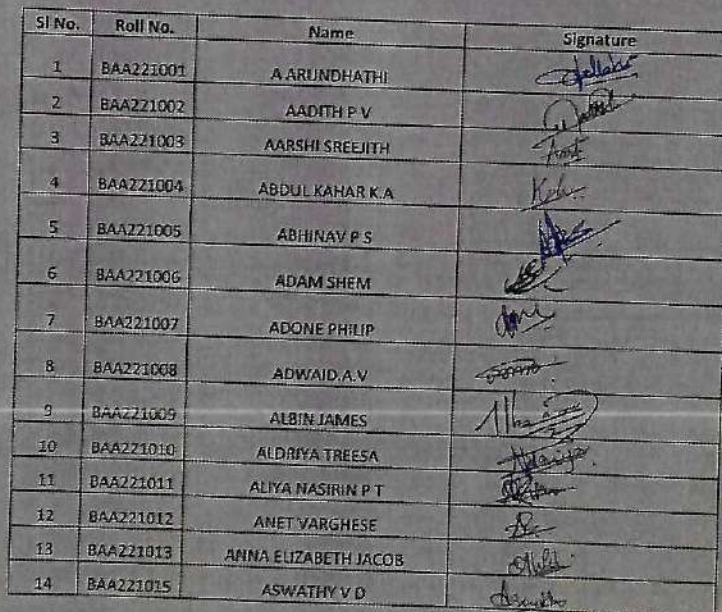 Sl No. Roll No. Name Signature
1 BAA221001 A ARUNDHATHI
2 BAA221002 AADITH P V
3 BAA221003 AARSHI SREEJITH
4 BAA221004 ABDUL KAHAR K.A
5 BAA221005 ABHINAV P S
6 BAA221006 ADAM SHEM
7 BAA221007 ADONE PHILIP
8 BAA221008 ADWAID.A.V
9 BAA221009 ALBIN JAMES
10 BAA221010 ALDRIYA TREESA
11 BAA221011 ALIYA NASIRIN P T
12 BAA221012 ANET VARGHESE
13 BAA221013 ANNA ELIZABETH JACOB
14 BAA221015 ASWATHY V D